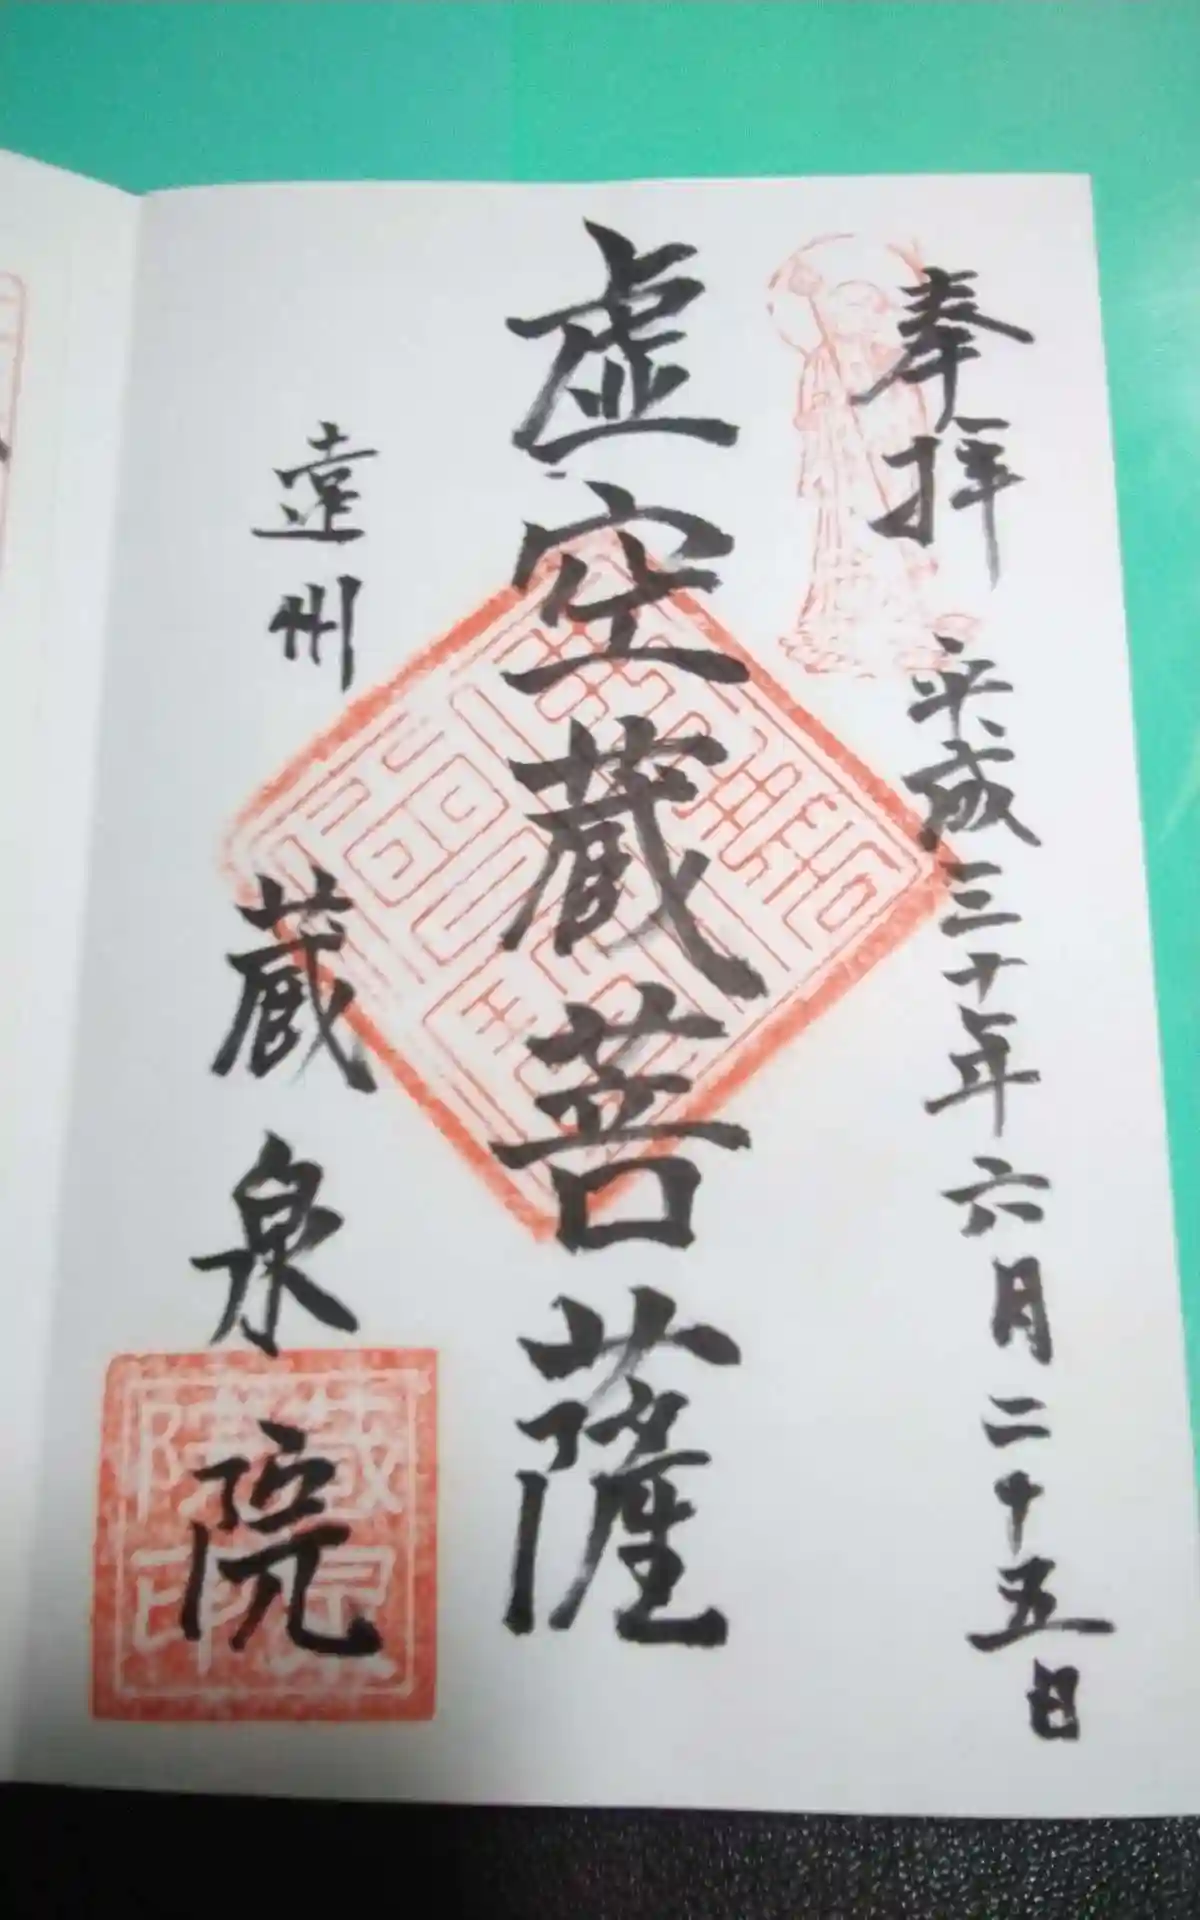 奉拝 平成三十年六月二十五日
虚空蔵菩薩
遠州 蔵泉院
蔵泉院印